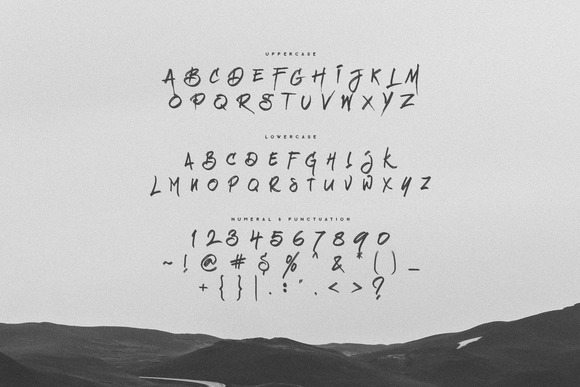 UPPERCASE
A B C D E F G H I J K L M
O P Q R S T U V W X Y Z
LOWERCASE
A B C D E F G H I J K
L M N O P Q R S T U V W X Y Z
NUMERAL & PUNCTUATION
1 2 3 4 5 6 7 8 9 0
~ ! @ # $ % ^ & * ( ) _
+ { } | . : " . < > ?